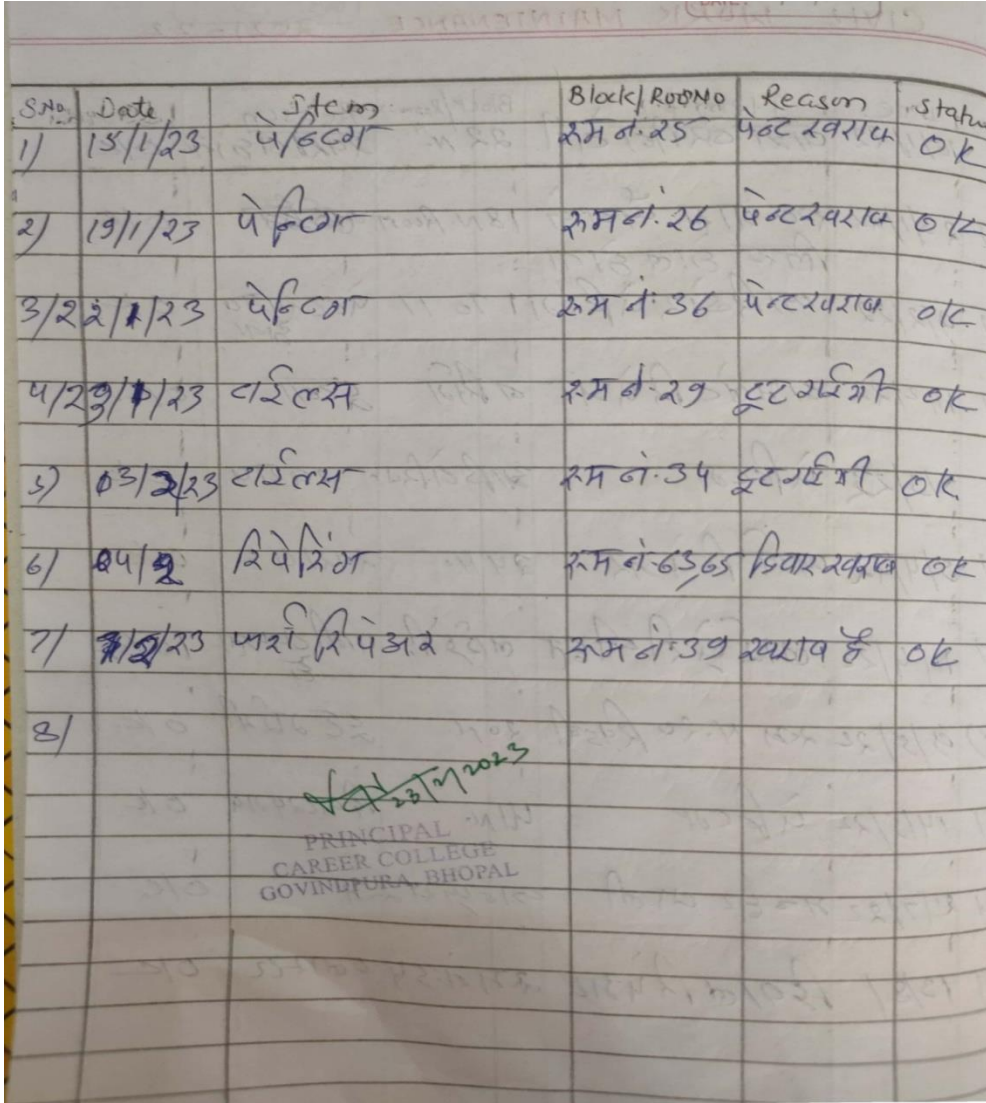 S.No. Date Item Block/Room No Reason Status
1) 15/1/23 पेन्टिग रूम नं. 25 पेन्ट खराब OK
2) 19/1/23 पेन्टिग रूम नं. 26 पेन्ट खराब OK
3/ 22/1/23 पेन्टिग रूम नं. 36 पेन्ट खराब OK
4/ 29/1/23 टाईल्स रूम नं. 29 टूट गई थी OK
5) 03/2/23 टाईल्स रूम नं. 34 टूट गई थी OK
6) 04/2 रिपेरिंग रूम नं. 63,65 दिवार खराब OK
7/ /2/23 फर्श रिपेअर रूम नं. 39 खराब है OK
8/
23/2/2023
PRINCIPAL
CAREER COLLEGE
GOVINDPURA, BHOPAL